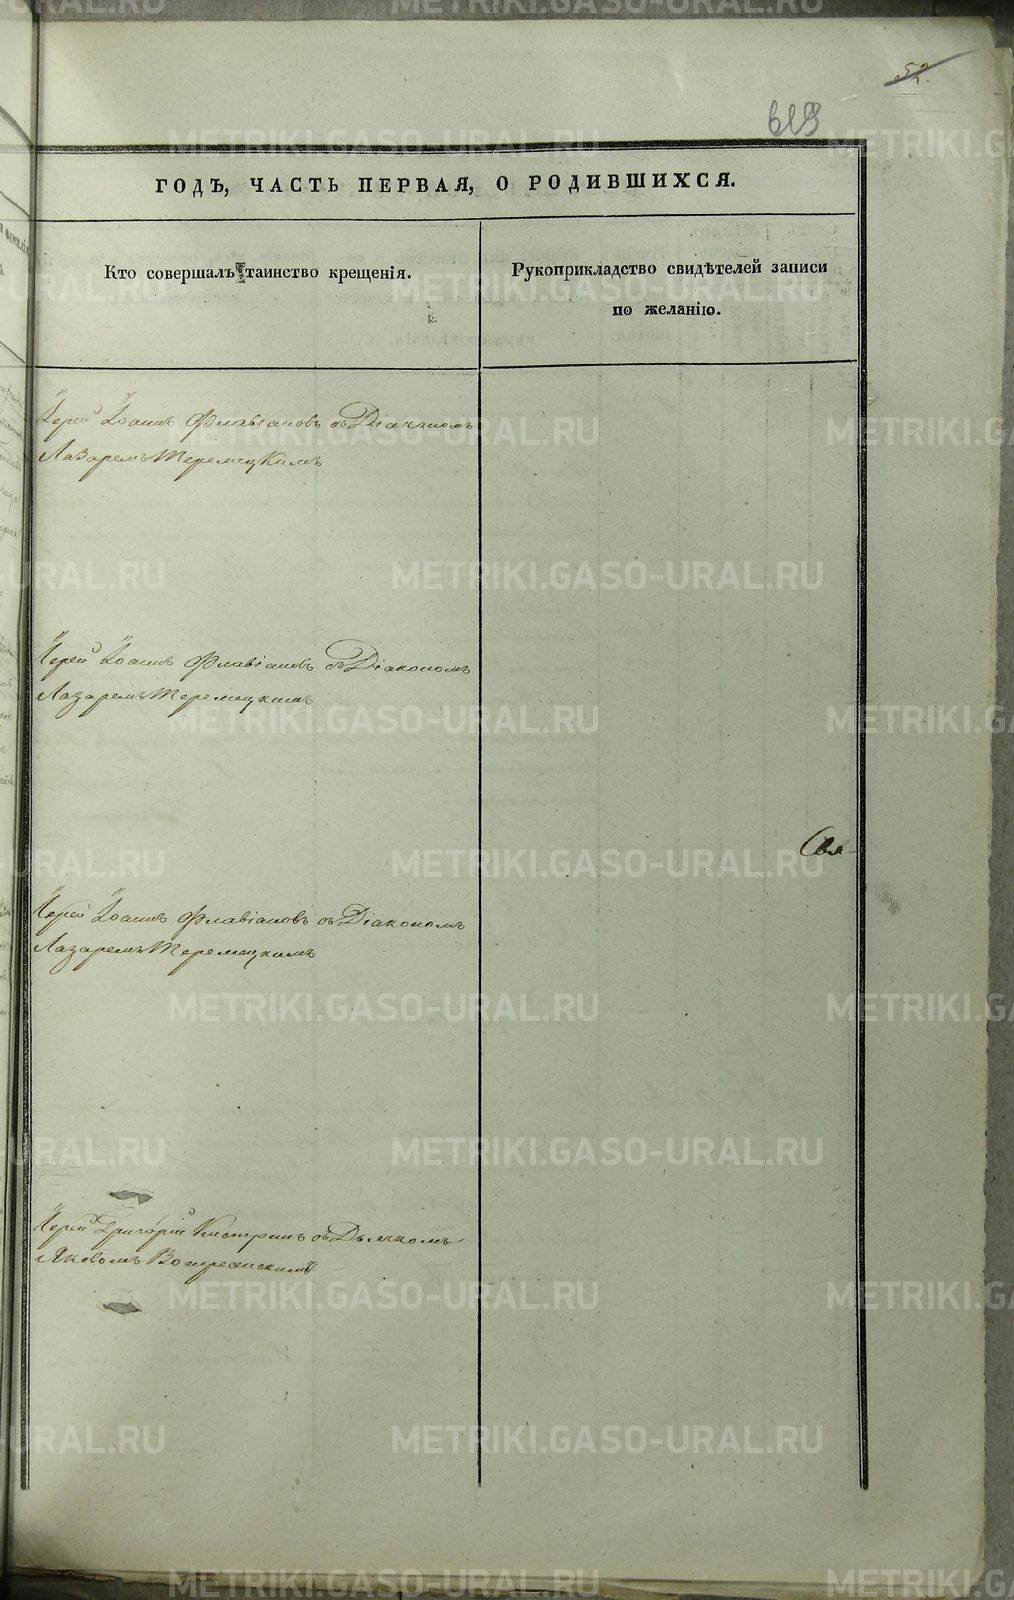 52.
619
ГОДЪ, ЧАСТЬ ПЕРВАЯ, О РОДИВШИХСЯ.
Кто совершалъ таинство крещенія.
Рукоприкладство свидѣтелей записи
по желанію.
Іерей Іоаннъ Флавіановъ съ Діакономъ
Лазаремъ Теремецкимъ
Іерей Іоаннъ Флавіановъ съ Діакономъ
Лазаремъ Теремецкимъ
Свя-
Іерей Іоаннъ Флавіановъ съ Діакономъ
Лазаремъ Теремецкимъ
Іерей Григорій съ Дьячкомъ
Яковомъ Воскресенскимъ
METRIKI.GASO-URAL.RU